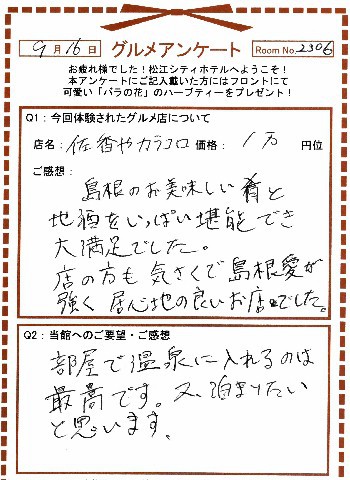 9月16日 グルメアンケート Room No. 2306
お疲れ様でした!松江シティホテルへようこそ!
本アンケートにご記入戴いた方にはフロントにて
可愛い「バラの花」のハーブティーをプレゼント!
Q1:今回体験されたグルメ店について
店名:佐香やカラコロ 価格:1万 円位
ご感想:
島根のお美味しい肴と
地酒をいっぱい堪能でき
大満足でした。
店の方も気さくで島根愛が
強く居心地の良いお店でした。
Q2:当館へのご要望・ご感想
部屋で温泉に入れるのは
最高です。又、泊まりたい
と思います。